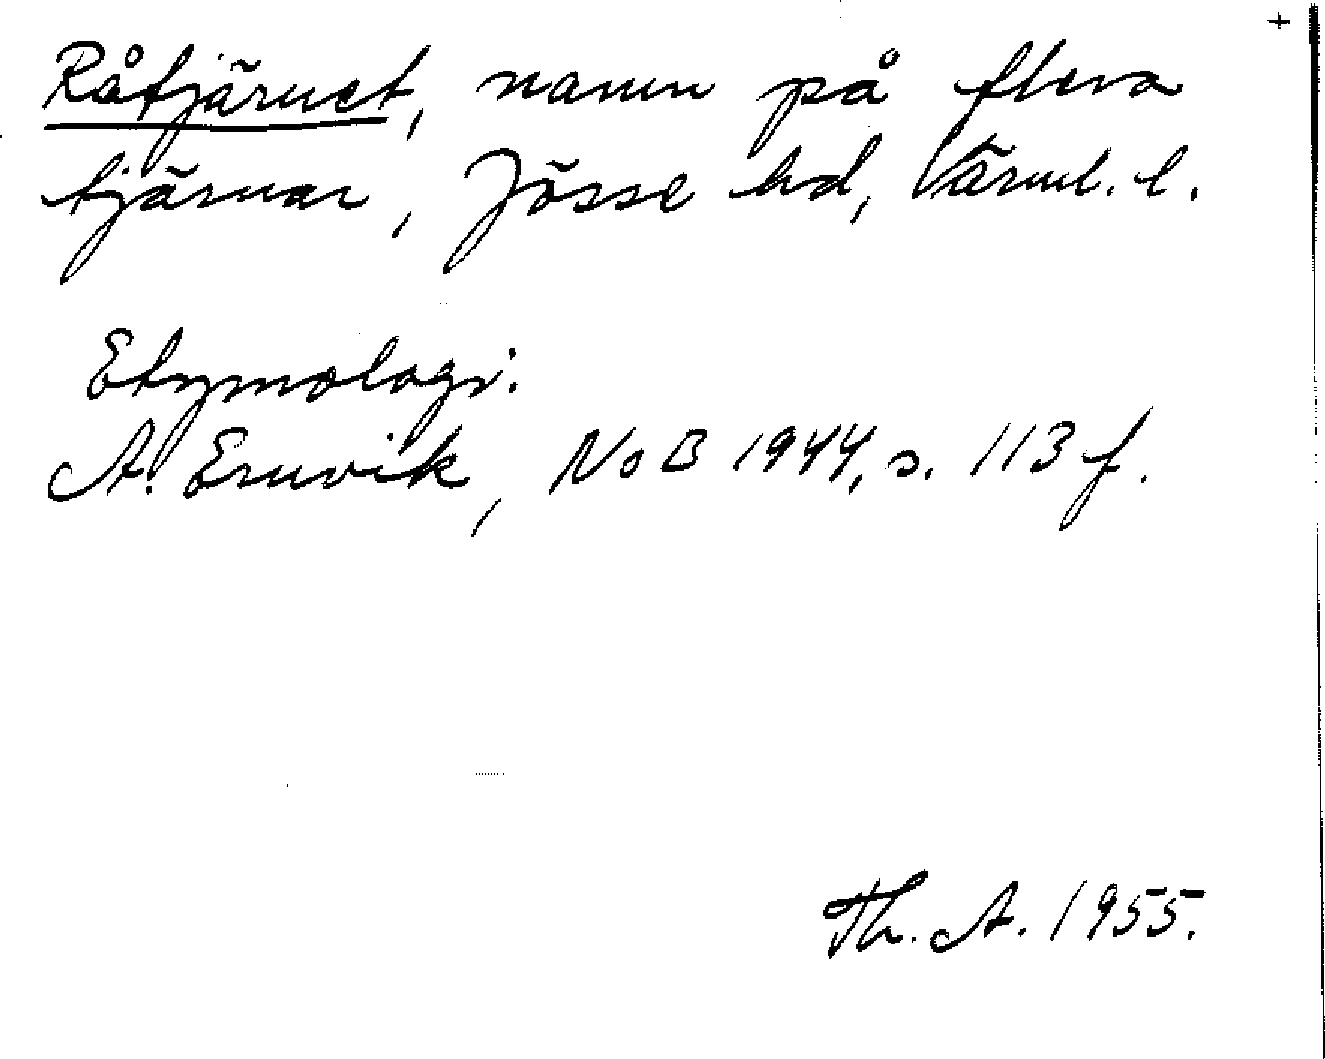 +
Råtjärnet, namn på flera
tjärnar, Jösse hd, Värml. l.
Etymologi:
A. Ernvik, NoB 1944, s. 113 f.
Th. A. 1955.